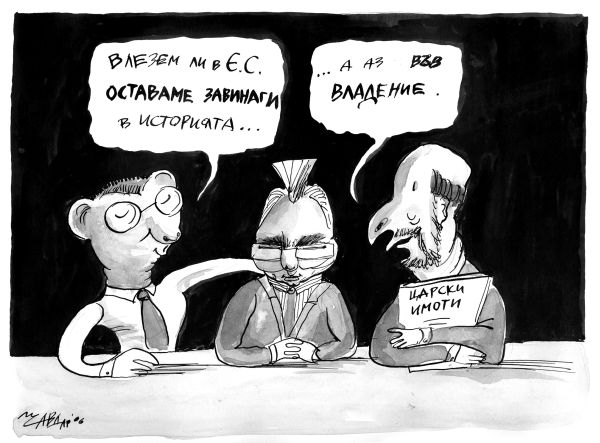 ВЛЕЗЕМ ЛИ В Е.С.
ОСТАВАМЕ ЗАВИНАГИ
В ИСТОРИЯТА...
... А АЗ ВЪВ
ВЛАДЕНИЕ.
ЦАРСКИ
ИМОТИ